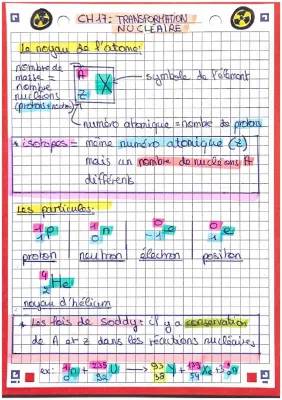 CH 17: TRANSFORMATION
NUCLÉAIRE
Le noyau de l'atome:
nombre de
masse =
nombre
nucléons
(protons+neutrons)
A
Z
X
symbole de l'élément
numéro atomique = nombre de protons
* isotopes = même numéro atomique (Z)
mais un nombre de nucléons A
différents
Les particules:
1 1 p
1 0 n
0 -1 e
0 1 e
proton
neutron
électron
positon
4 2 He
noyau d'hélium
* Les lois de Soddy: il y a conservation
de A et Z dans les réactions nucléaires
ex: 1 0 n + 235 92 U → 93 Y +